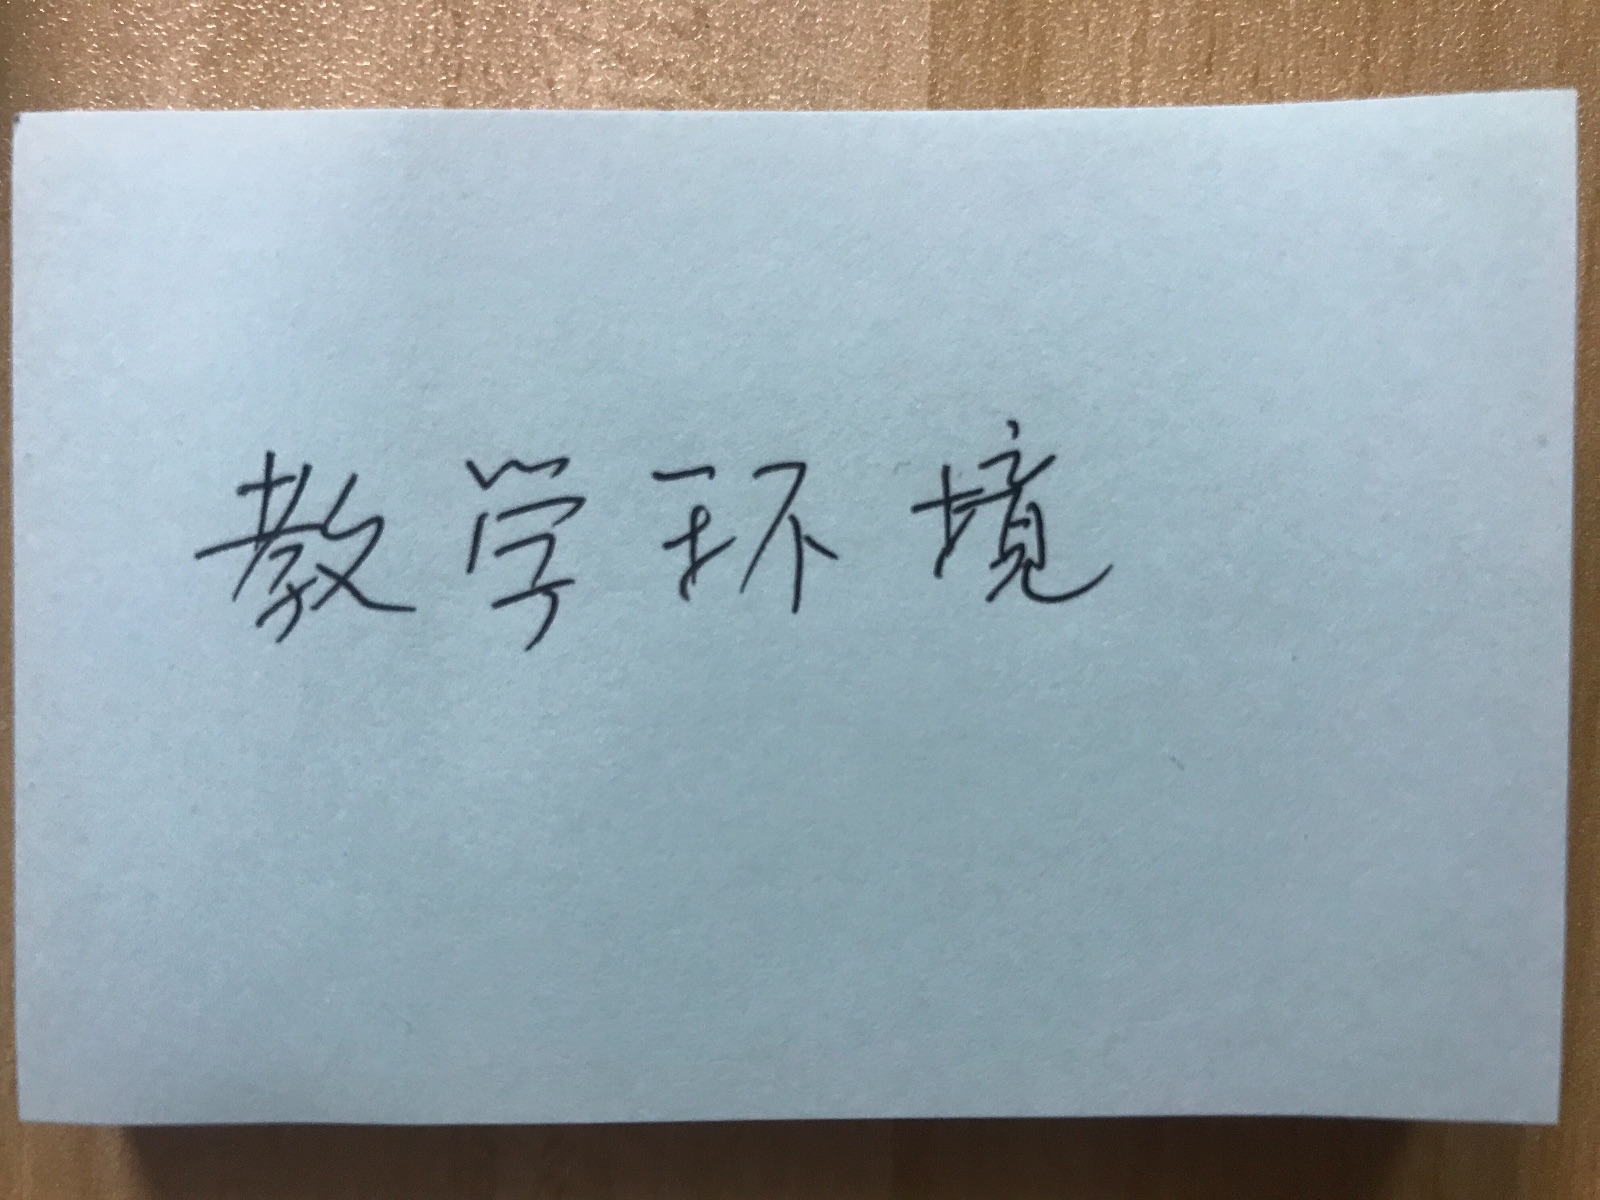 教学环境